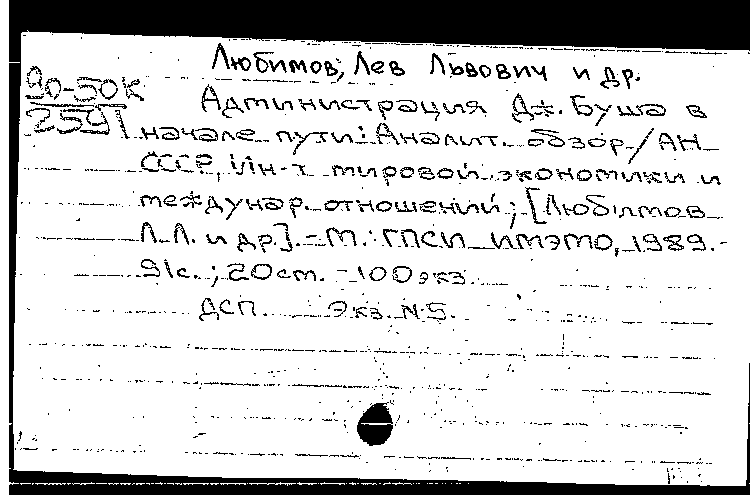 Любимов, Лев Львович и др.
90-50к
2591
Администрация Дж. Буша в
начале пути: Аналит. обзор / АН
СССР, Ин-т мировой экономики и
междунар. отношений; [Любимов
Л.Л. и др.]. - М.: ГПСИ ИМЭМО, 1989. -
91с.; 20см. - 100экз.
ДСП. Экз. N5.